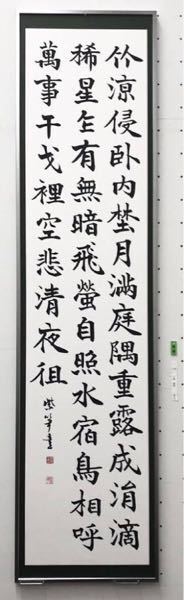 竹涼侵卧内埜月滿庭隅重露成涓滴
稀星乍有無暗飛螢自照水宿鳥相呼
萬事干戈裡空悲清夜徂